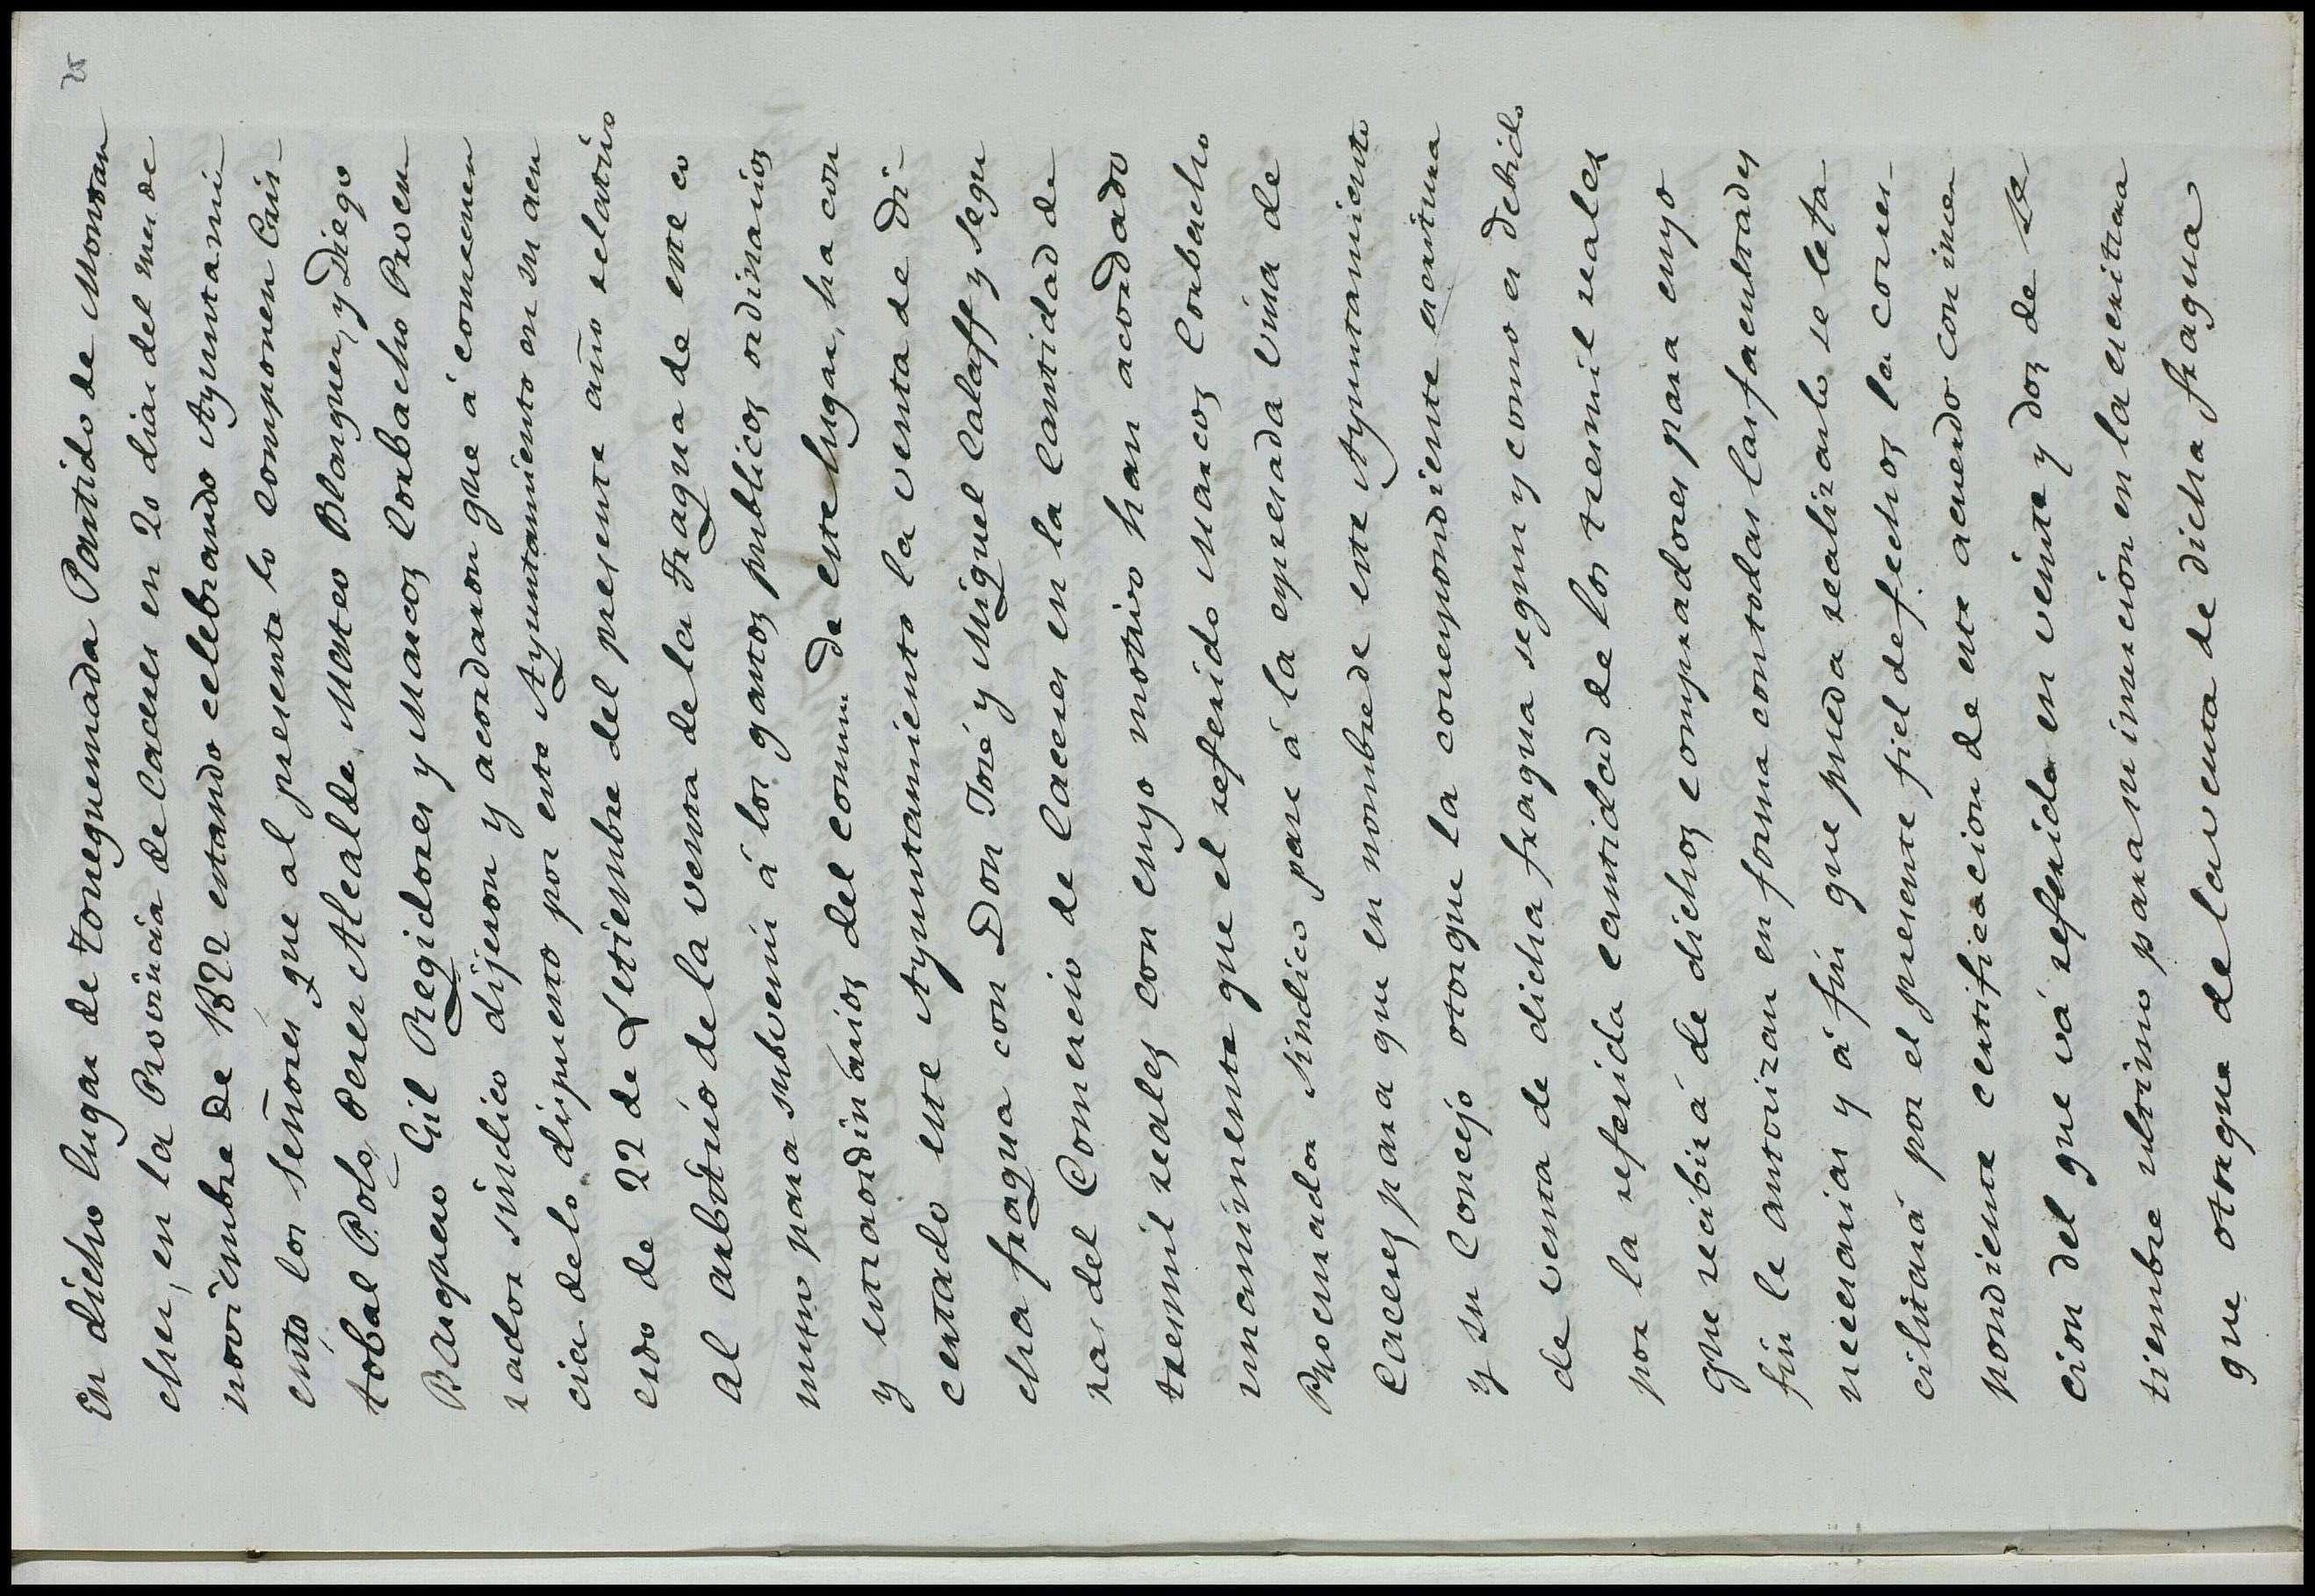 25
En dicho lugar de Torrequemada Partido de Montan
chez, en la Provincia de Caceres en 20 dias del mes de
noviembre de 1822 estando celebrando Ayuntami-
ento los señores que al presente lo componen Cris-
tobal Polo Perez Alcalde, Mateo Blanquez, y Diego
Baquero Gil Regidores y Marcos Corbacho Procu
rador sindico dijeron y acordaron que á consecuen
cia de lo dispuesto por este Ayuntamiento en su acu
erdo de 22 de Setiembre del presente año relativo
al arbitrio de la venta de la Fragua de este co
mun para subvenir á los gastos publicos ordinarios
y extraordinarios del comun de este lugar, ha con
certado este Ayuntamiento la venta de di-
cha fragua con Don José y Miguel Calaff y Segu
ras del Comercio de Caceres en la Cantidad de
tresmil reales con cuyo motivo han acordado
unanimente que el referido Marcos Corbacho
Procurador sindico pase á la expresada Villa de
Caceres para que en nombre de este Ayuntamiento
y su Concejo otorgue la correspondiente escritura
de venta de dicha fragua segun y como es debido
por la referida cantidad de los tresmil reales
que recibirá de dichos compradores para cuyo
fin le autorizan en forma con todas las facultades
necesarias y á fin que pueda realizarlo se le fa
cilitará por el presente fiel de fechos la corres-
pondiente certificacion de este acuerdo con incer
cion del que vá referido en veinte y dos de Se
tiembre ultimo para su insercion en la escritura
que otorgue de la venta de dicha fragua